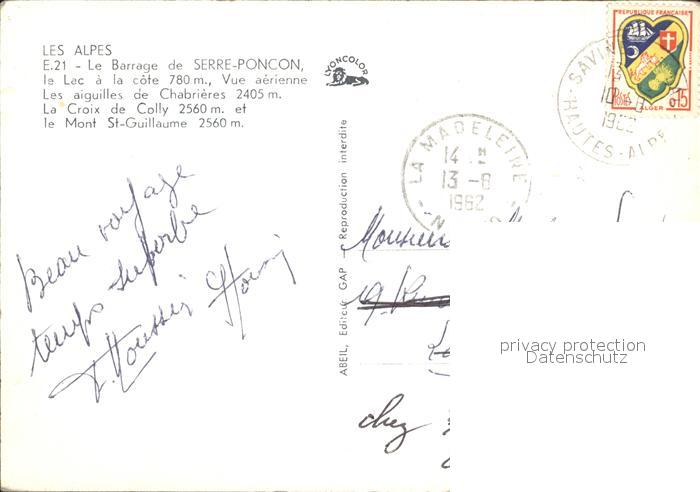 LES ALPES
E.21 - Le Barrage de SERRE-PONCON,
le Lac à la côte 780 m., Vue aérienne
Les aiguilles de Chabrières 2405 m.
La Croix de Colly 2560 m. et
le Mont St-Guillaume 2560 m.
LYONCOLOR
REPUBLIQUE FRANÇAISE
POSTES
0,15
ALGER
SAVINES
HAUTES-ALPES
1962
LA MADELEINE
14 H
13 - 8
1962
ABEIL, Editeur GAP — Reproduction interdite
Beau voyage
temps superbe
Monsieur
chez
privacy protection
Datenschutz